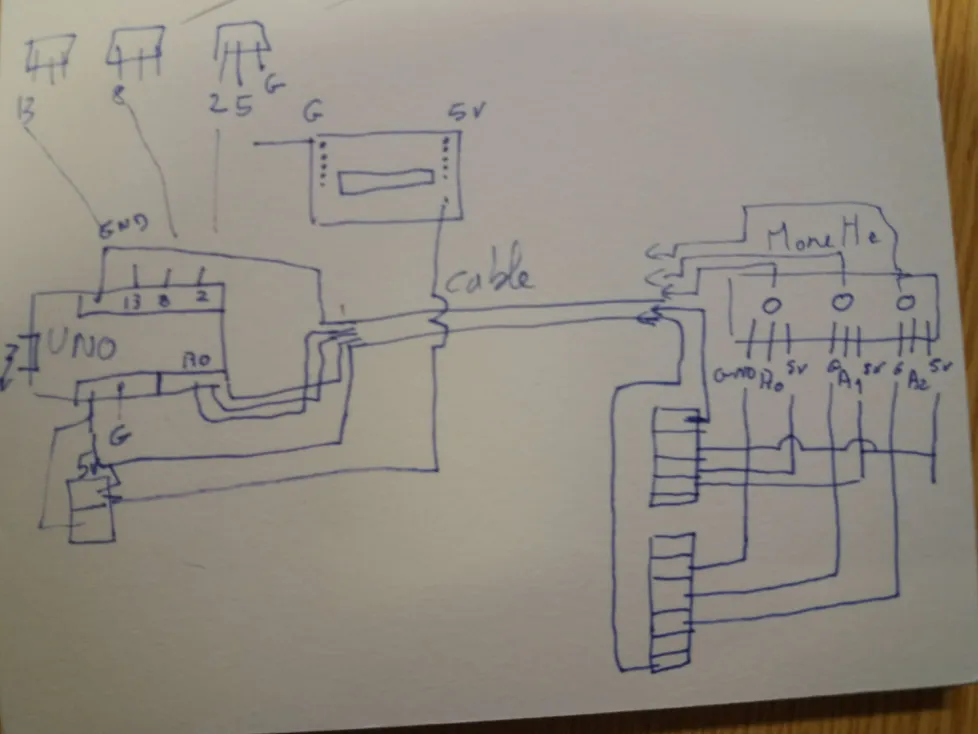 13
8
2 5 G
G
5V
GND
13 8 2
UNO
A0
G
5V
cable
MoneHe
GND A0 5V G A1 5V G A2 5V